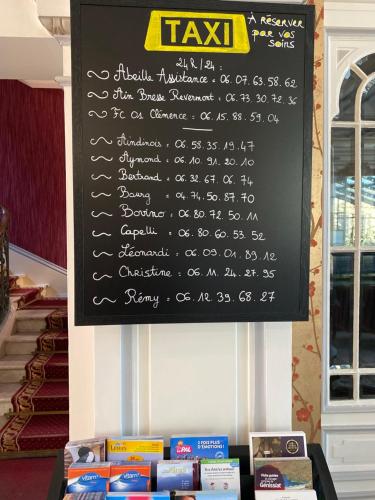 TAXI
À RÉSERVER
par vos
soins
24h/24 :
Abeille Assistance : 06.07.63.58.62
Ain Bresse Revermont : 06.73.30.72.36
Fc Os Clémence : 06.15.88.59.04
Aindinois : 06.58.35.19.47
Aymond : 06.10.91.20.10
Bertrand : 06.32.67.06.74
Bourg : 04.74.50.87.70
Bovino : 06.80.72.50.11
Capelli : 06.80.60.53.52
Léonardi : 06.09.01.89.12
Christine : 06.11.24.27.95
Rémy : 06.12.39.68.27
PAL
Génissiat